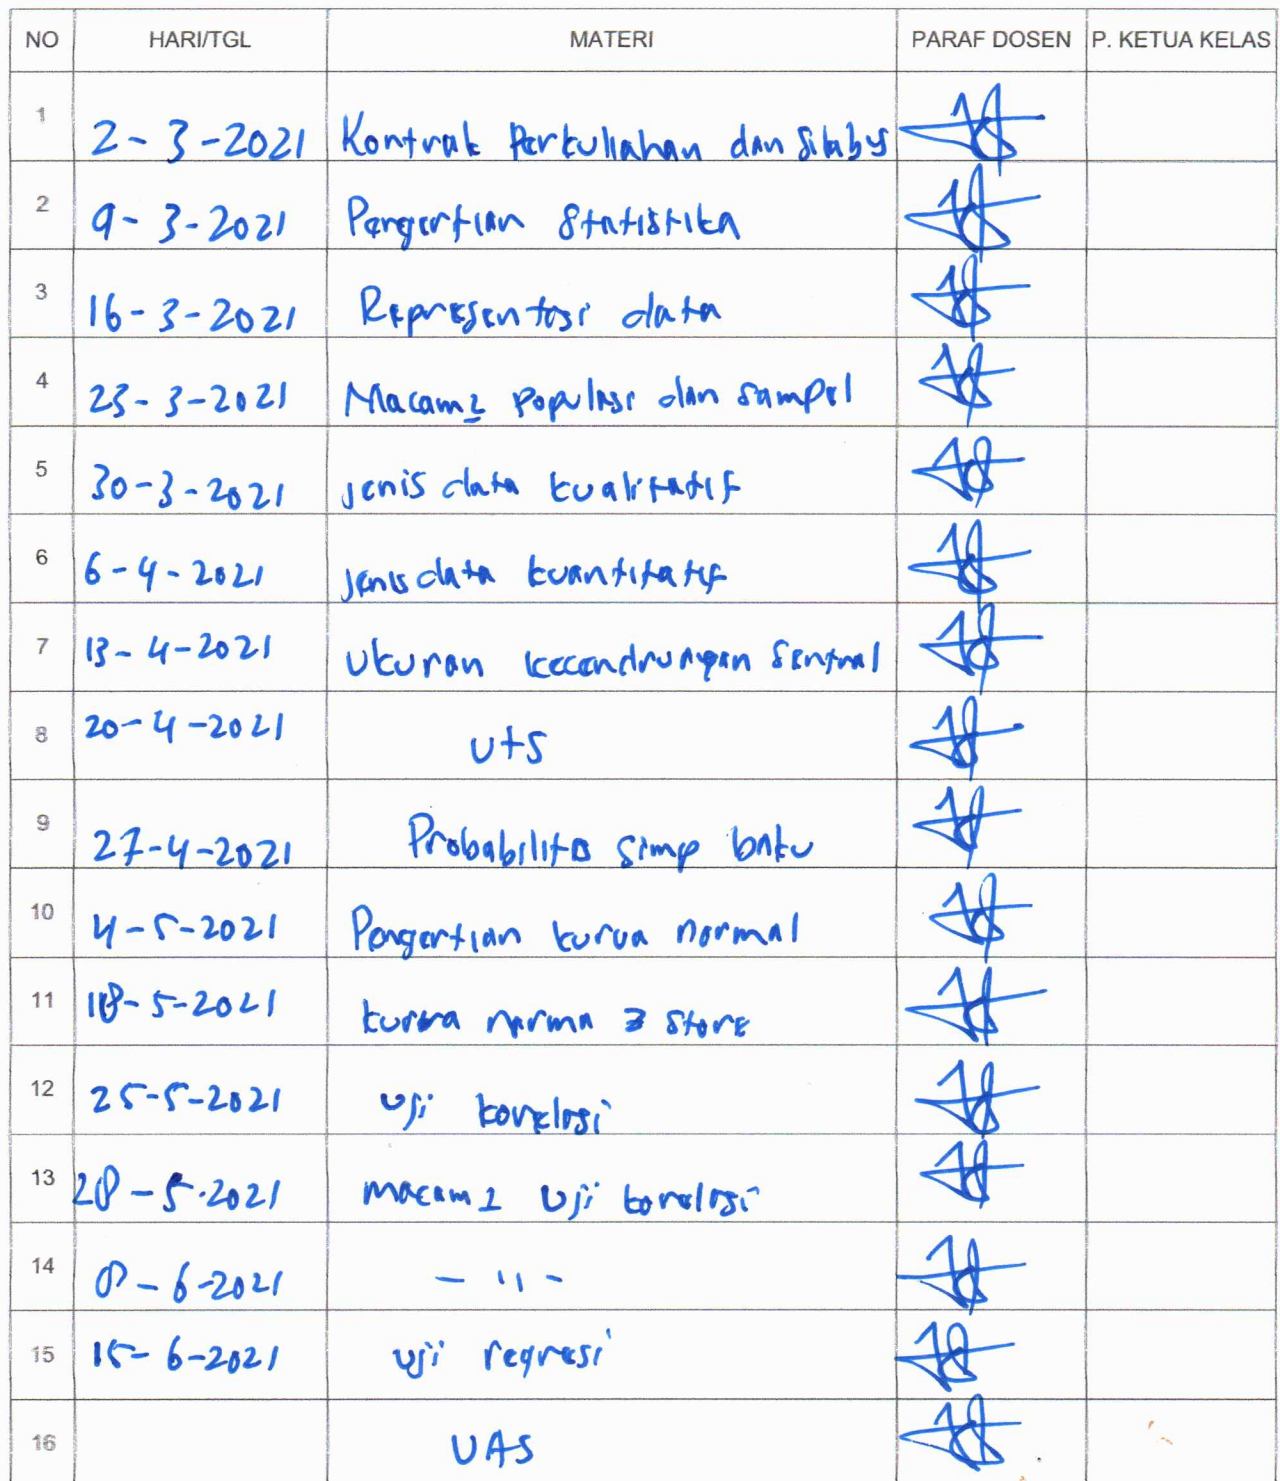 NO HARI/TGL MATERI PARAF DOSEN P. KETUA KELAS
1 2-3-2021 Kontrak Perkuliahan dan Silabus
2 9-3-2021 Pengertian Statistika
3 16-3-2021 Representasi data
4 23-3-2021 Macam2 populasi dan sampel
5 30-3-2021 jenis data kualitatif
6 6-4-2021 jenis data kuantitatif
7 13-4-2021 Ukuran kecendrungan Sentral
8 20-4-2021 UtS
9 27-4-2021 Probabilitas simp baku
10 4-5-2021 Pengertian kurva normal
11 18-5-2021 kurva norma z store
12 25-5-2021 uji korelasi
13 28-5-2021 macam2 uji korelasi
14 8-6-2021 - 11 -
15 15-6-2021 uji regresi
16 UAS